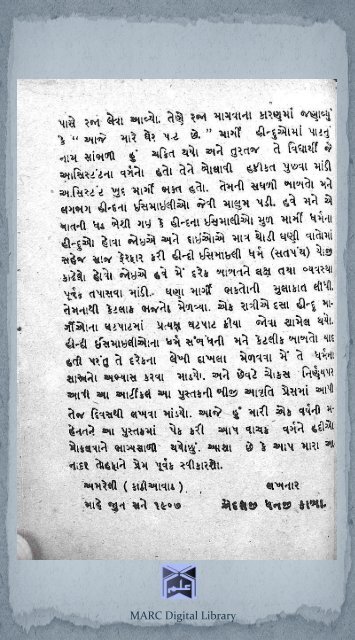 પાસે રજા લેવા આવ્યો. તેણે રજા માગવાના કારણમાં જણાવ્યું
કે "આજે મારે ઘેર પાટ છે." માર્ગી હીન્દુઓમાં પાટનું
નામ સાંભળી હું ચકિત થયો અને તુરતજ તે વિદ્યાર્થી જે
આસિસ્ટંટના વર્ગનો હતો તેને બોલાવી હકીકત પુછવા માંડી
આસિસ્ટંટ ખુદ માર્ગી ભક્ત હતો. તેમની સઘળી બાબતો મને
લગભગ હીન્દના ઈસમાઈલીઓ જેવી માલુમ પડી. હવે મને એ
બાતની ધડ બેશી ગઈ કે હીન્દના ઈસમાલીઓ મુળ માર્ગી ધર્મના
હીન્દુઓ હોવા જોઈએ અને દાઈઓએ માત્ર થોડી ઘણી વાતોમાં
સહેજ સાજ ફેરફાર કરી હીન્દી ઈસમાલી ધર્મ (સતપંથ) યોજી
કાઢેલો હોવો જોઈએ હવે મેં દરેક બાબતને લક્ષ તથા વ્યવસ્થા
પૂર્વક તપાસવા માંડી. ઘણા માર્ગી ભક્તોની મુલાકાત લીધી.
તેમનાથી કેટલાક ભજનો મેળવ્યા. એક રાત્રીએ દસા હીન્દુ મા-
ર્ગીઓના ઘટપાટમાં પ્રત્યક્ષ ઘટપાટ ક્રીયા જોવા સામેલ થયો.
હીન્દી ઈસમાઈલીઓના ધર્મ સંબંધની મને કેટલીક બાબતો યાદ
હતી પરંતુ તે દરેકના લેખી દાખલા મેળવવા મેં તે ધર્મના
શાસ્ત્રોનો અભ્યાસ કરવા માંડ્યો. અને છેવટે ચોકસ નિર્ણયપર
આવી આ આર્ટીકલ આ પુસ્તકની બીજી આવૃતિ પ્રેસમાં આપી
તેજ દિવસથી લખવા માંડ્યો. આજે હું મારી એક વર્ષની મ-
હેનતને આ પુસ્તકમાં પેક કરી આપ વાચક વર્ગને હદીઓ
મોકલવાને ભાગ્યશાળી થયોછું. આશા છે કે આપ મારા આ
નાદર તોહફાને પ્રેમ પૂર્વક સ્વીકારશો.
અમરેલી (કાઠીઆવાડ)
લખનાર
માહે જુન સને ૧૯૦૭
એદલજી ધનજી કાબા.
MARC Digital Library